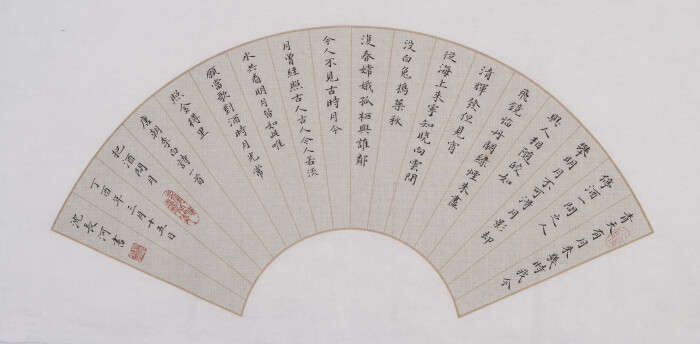 青天有月来幾時我今
停酒一問之人
攀明月不可得月影却
與人相随皎如
飛鏡临丹闕綠煙来盡
清輝發但見宵
從海上来寧知晓向雲間
没白兔捣藥秋
復春嫦娥孤栖與誰鄰
今人不見古時月今
月曾經照古人古人今人若流
水共看明月皆如此唯
願當歌對酒時月光常
照金樽里
唐朝李白詩一首
把酒問月
丁酉年三月十五日
沈長河書